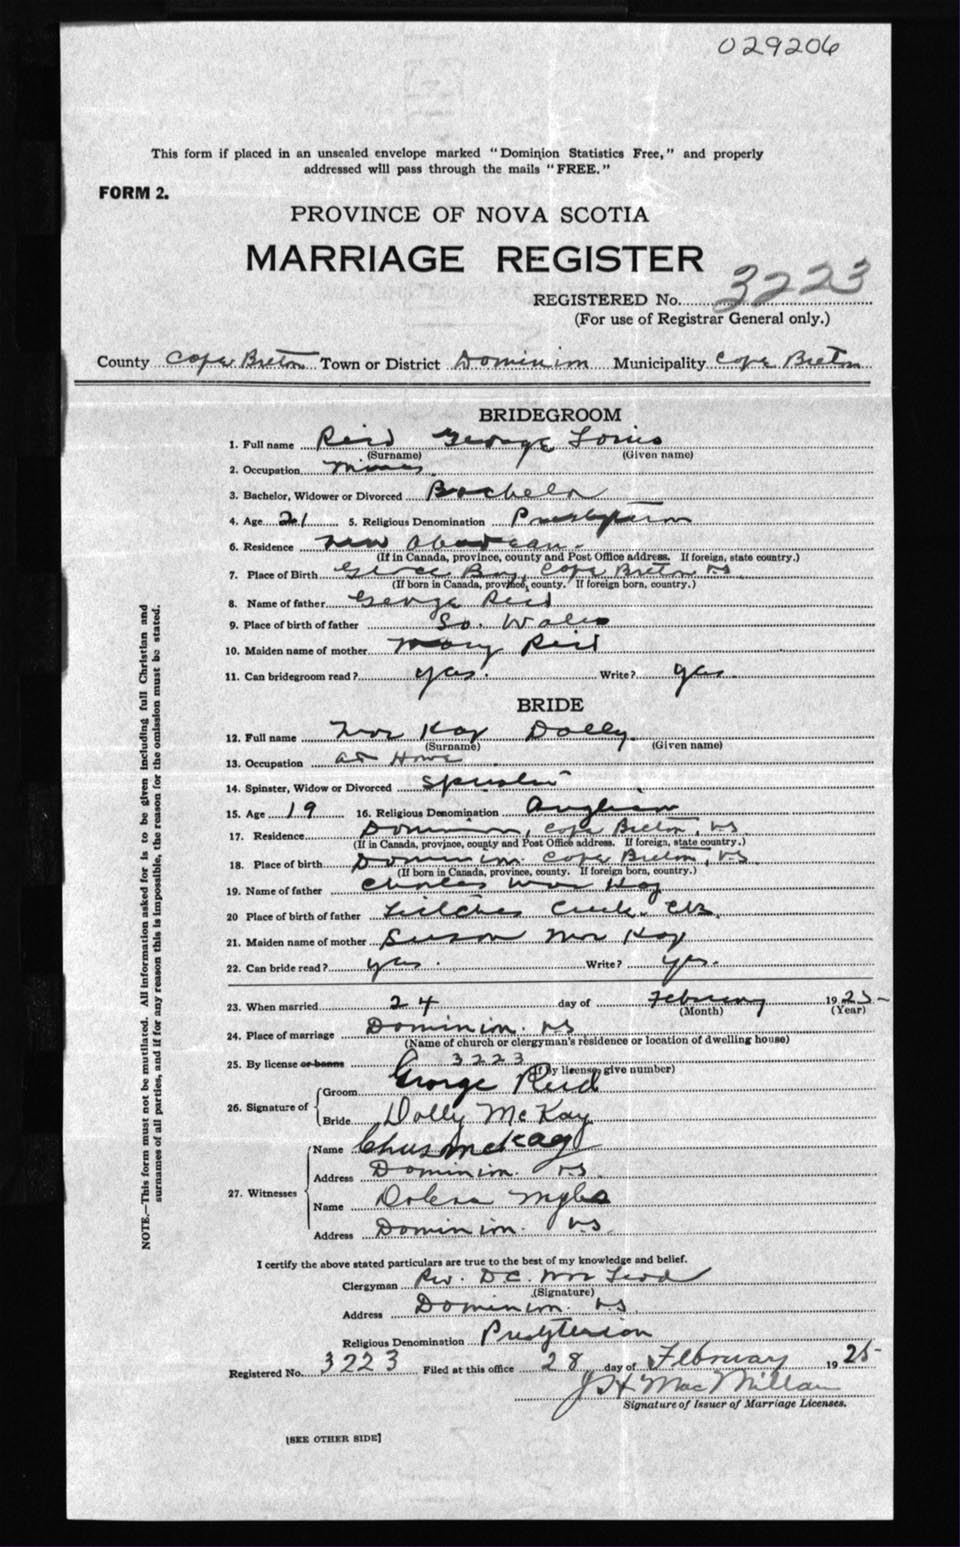 029206
This form if placed in an unsealed envelope marked "Dominion Statistics Free," and properly
addressed will pass through the mails "FREE."
FORM 2.
PROVINCE OF NOVA SCOTIA
MARRIAGE REGISTER
REGISTERED No. 3223
(For use of Registrar General only.)
County Cape Breton Town or District Dominion Municipality Cape Breton
BRIDEGROOM
1. Full name Reid George Louis
(Surname) (Given name)
2. Occupation Miner
3. Bachelor, Widower or Divorced Bachelor
4. Age 21 5. Religious Denomination Presbyterian
6. Residence New Aberdeen.
(If in Canada, province, county and Post Office address. If foreign, state country.)
7. Place of Birth Glace Bay, Cape Breton NS
(If born in Canada, province, county. If foreign born, country.)
8. Name of father George Reid
9. Place of birth of father So. Wales
10. Maiden name of mother Mary Reid
11. Can bridegroom read? yes. Write? yes.
BRIDE
12. Full name Mc Kay Dolly.
(Surname) (Given name)
13. Occupation at Home
14. Spinster, Widow or Divorced Spinster
15. Age 19 16. Religious Denomination Anglican
17. Residence Dominion, Cape Breton, NS
(If in Canada, province, county and Post Office address. If foreign, state country.)
18. Place of birth Dominion. Cape Breton, NS
(If born in Canada, province, county. If foreign born, country.)
19. Name of father Charles Mc Kay
20 Place of birth of father Leitches Creek. CB.
21. Maiden name of mother Susan Mc Kay
22. Can bride read? yes. Write? yes.
23. When married 24 day of February 1925
(Month) (Year)
24. Place of marriage Dominion. NS
(Name of church or clergyman's residence or location of dwelling house)
25. By license or banns 3223
(If by license, give number)
26. Signature of Groom George Reid
Bride Dolly McKay
27. Witnesses Name Chas McKay
Address Dominion. NS.
Name Myles
Address Dominion. NS.
I certify the above stated particulars are true to the best of my knowledge and belief.
Clergyman Rev. D.C. Mc Leod
(Signature)
Address Dominion. NS
Religious Denomination Presbyterian
Registered No. 3223 Filed at this office 28 day of February 1925
J H MacMillan
Signature of Issuer of Marriage Licenses.
[SEE OTHER SIDE]
NOTE.—This form must not be mutilated. All information asked for is to be given including full Christian and
surnames of all parties, and if for any reason this is impossible, the reason for the omission must be stated.